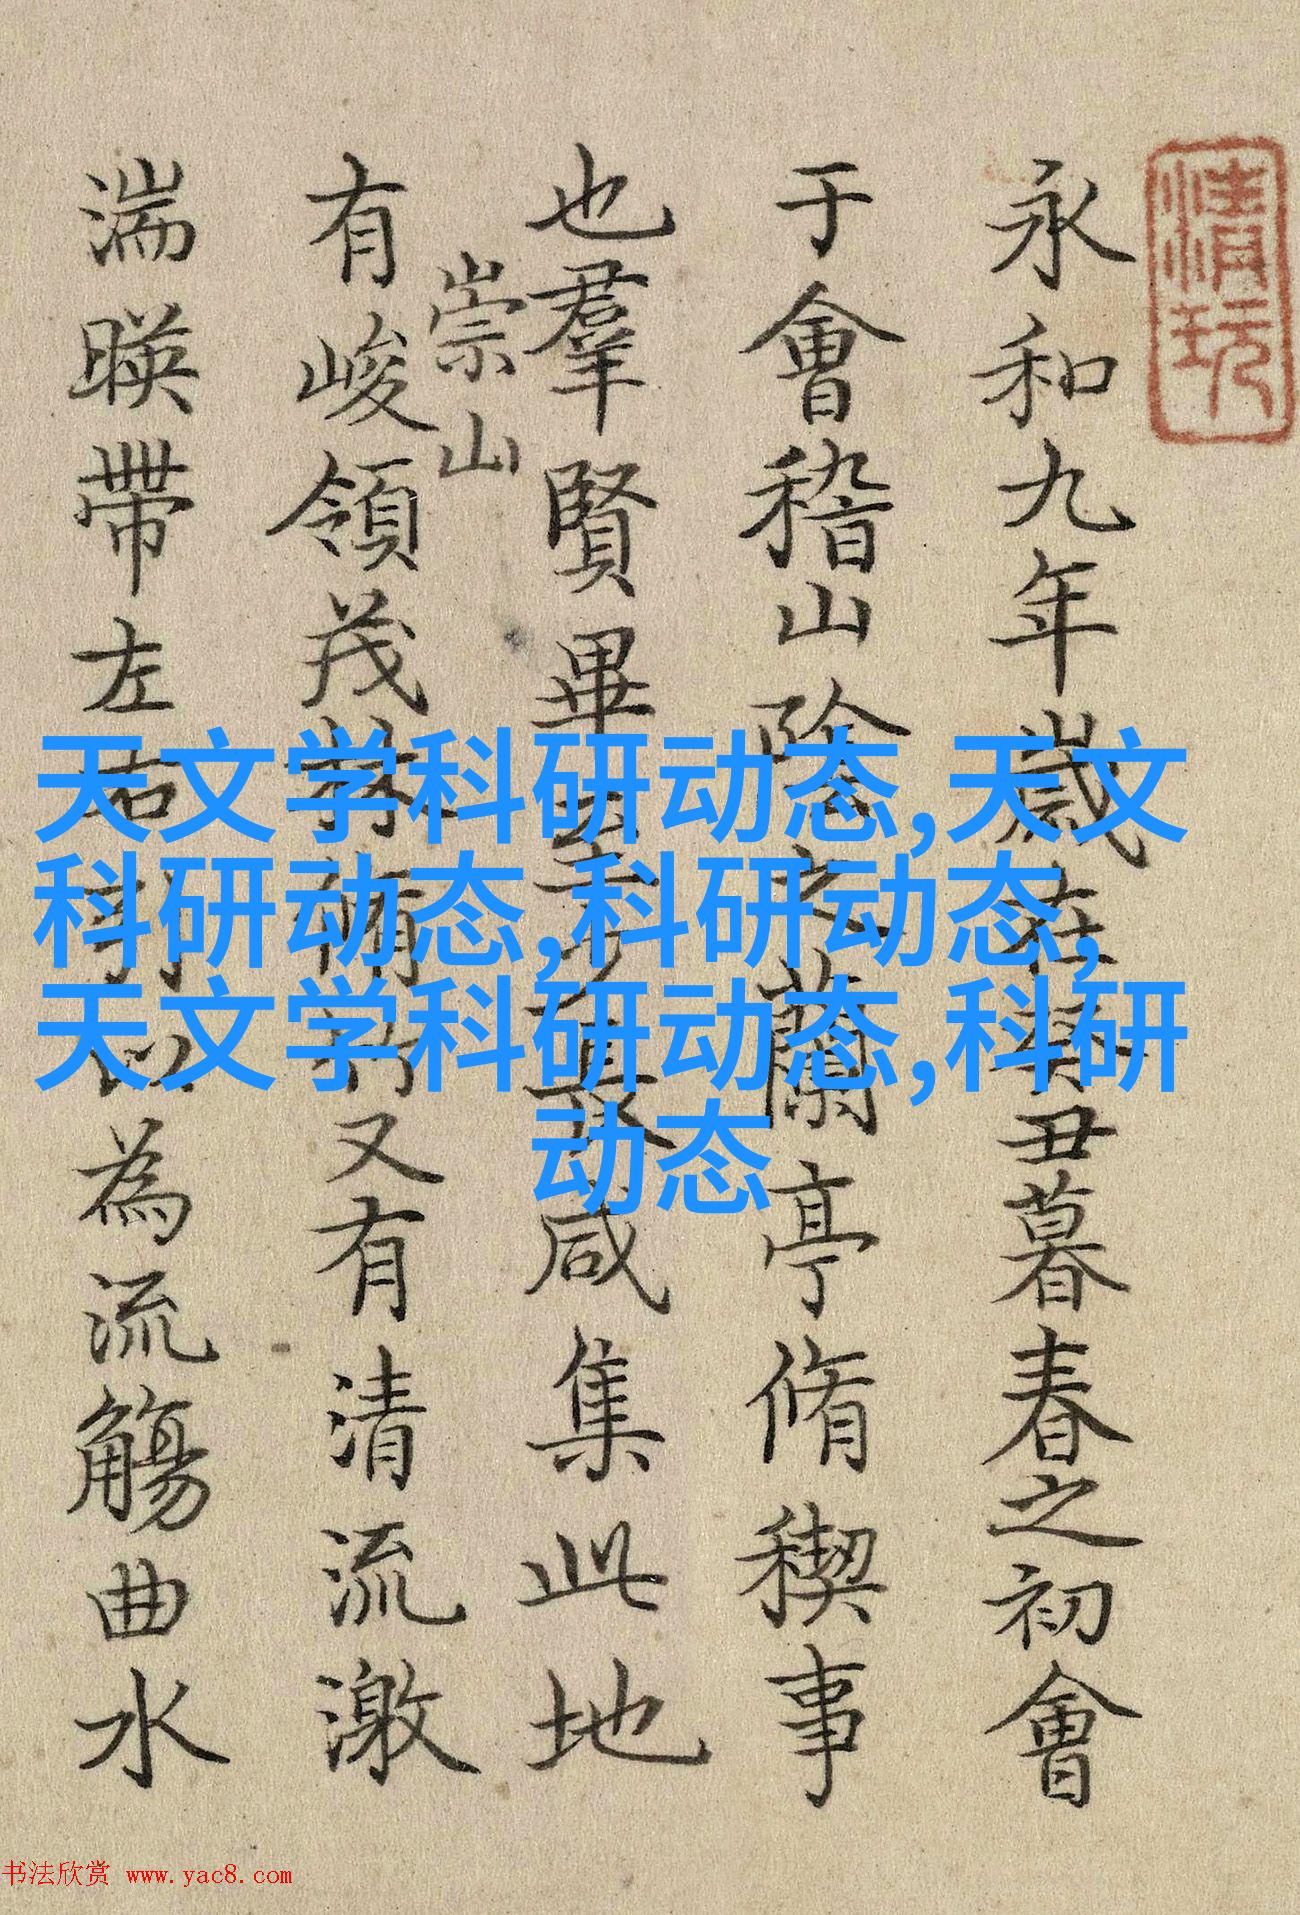 清玩
永和九年歲在癸丑暮春之初會
于會稽山陰之蘭亭脩稧事
也羣賢畢至少長咸集此地
崇山
有峻領茂林脩竹又有清流激
湍暎帶左右引以為流觴曲水
天文学科研动态,天文
科研动态,科研动态,
天文学科研动态,科研
动态
书法欣赏 www.yac8.com